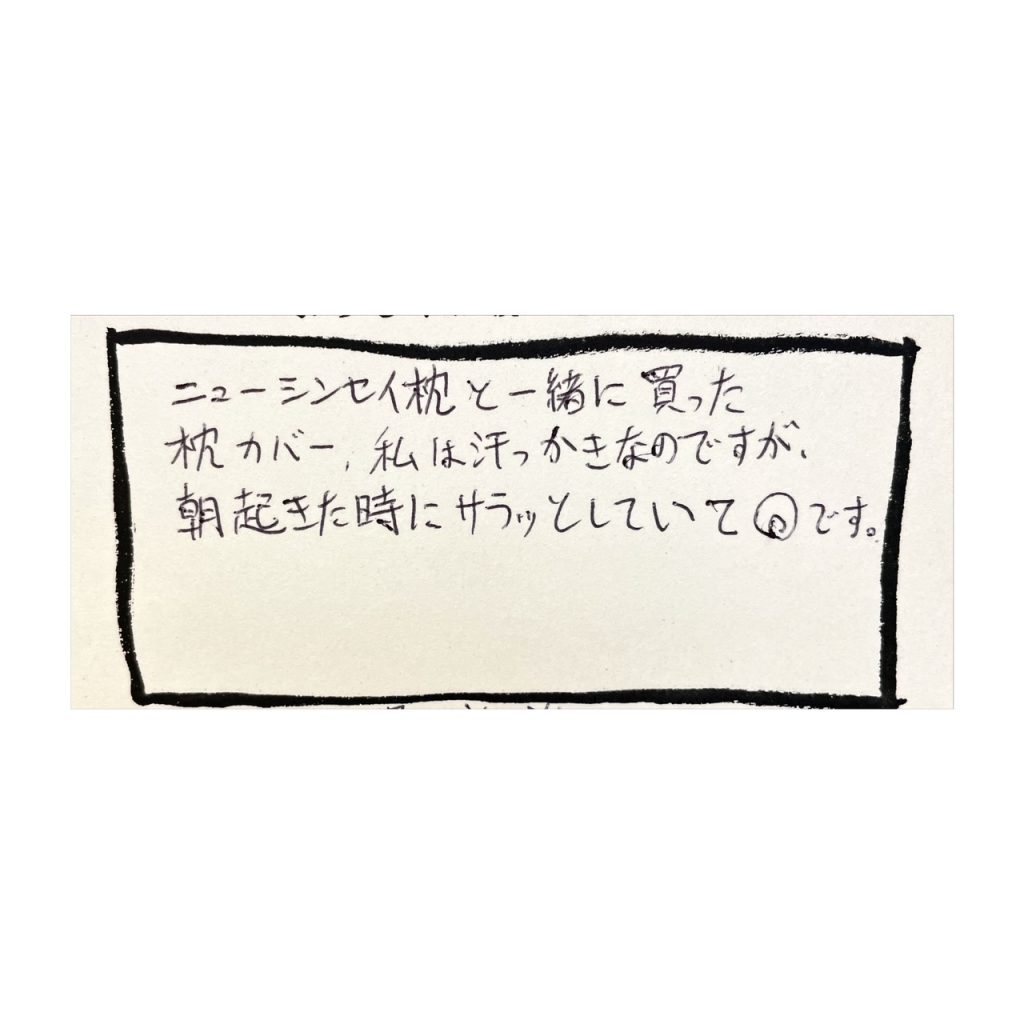 ニューシンセイ枕と一緒に買った
枕カバー、私は汗っかきなのですが、
朝起きた時にサラッとしていて◎です。